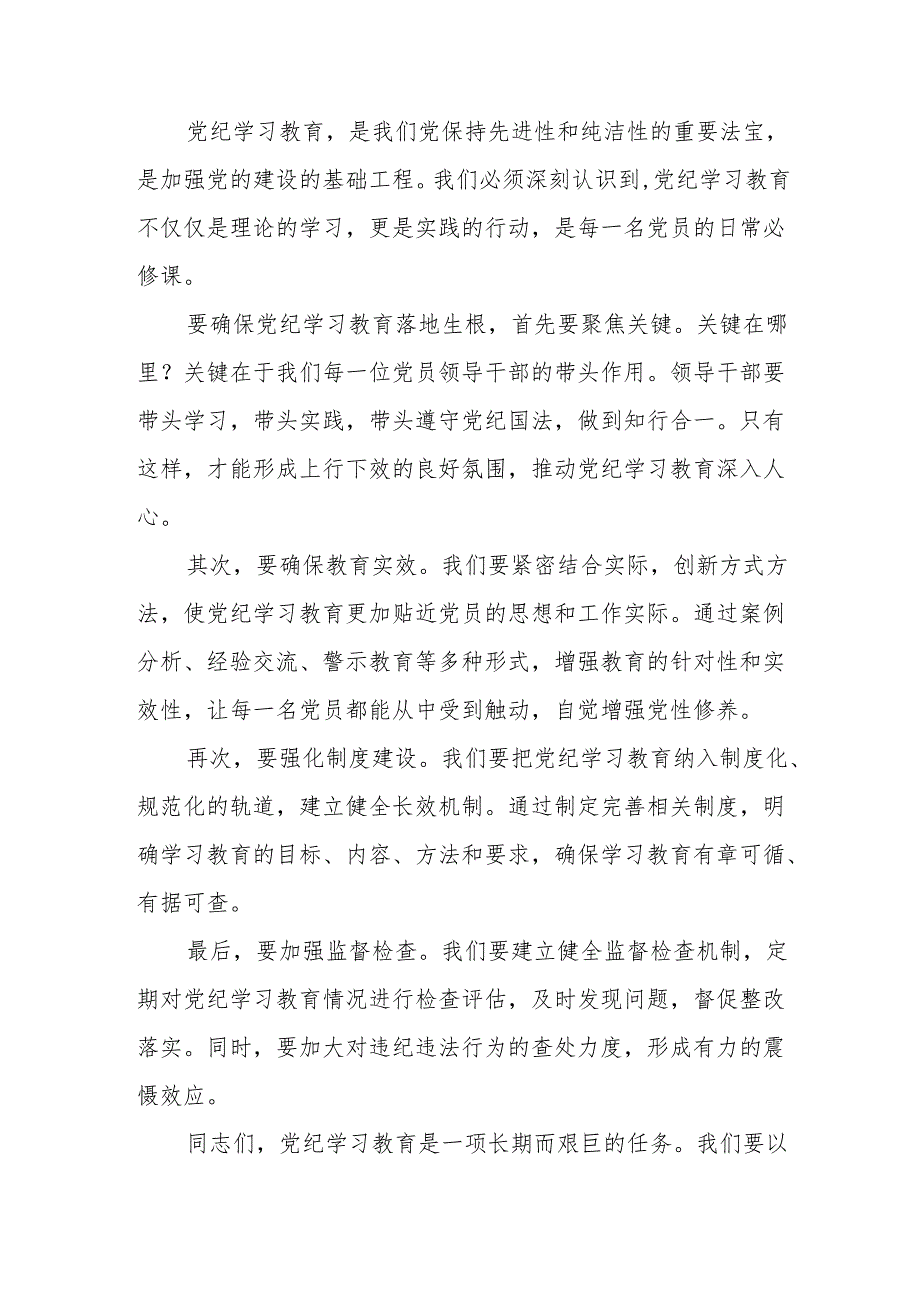 党纪学习教育，是我们党保持先进性和纯洁性的重要法宝，
是加强党的建设的基础工程。我们必须深刻认识到,党纪学习教育
不仅仅是理论的学习，更是实践的行动，是每一名党员的日常必
修课。
要确保党纪学习教育落地生根，首先要聚焦关键。关键在哪
里？关键在于我们每一位党员领导干部的带头作用。领导干部要
带头学习，带头实践，带头遵守党纪国法，做到知行合一。只有
这样，才能形成上行下效的良好氛围，推动党纪学习教育深入人
心。
其次，要确保教育实效。我们要紧密结合实际，创新方式方
法，使党纪学习教育更加贴近党员的思想和工作实际。通过案例
分析、经验交流、警示教育等多种形式，增强教育的针对性和实
效性，让每一名党员都能从中受到触动，自觉增强党性修养。
再次，要强化制度建设。我们要把党纪学习教育纳入制度化、
规范化的轨道，建立健全长效机制。通过制定完善相关制度，明
确学习教育的目标、内容、方法和要求，确保学习教育有章可循、
有据可查。
最后，要加强监督检查。我们要建立健全监督检查机制，定
期对党纪学习教育情况进行检查评估，及时发现问题，督促整改
落实。同时，要加大对违纪违法行为的查处力度，形成有力的震
慑效应。
同志们，党纪学习教育是一项长期而艰巨的任务。我们要以